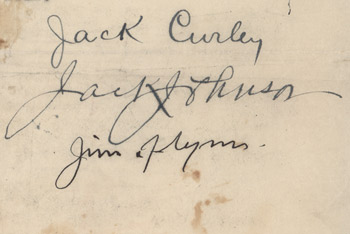 Jack Curley
Jack Johnson
Jim Flynn.